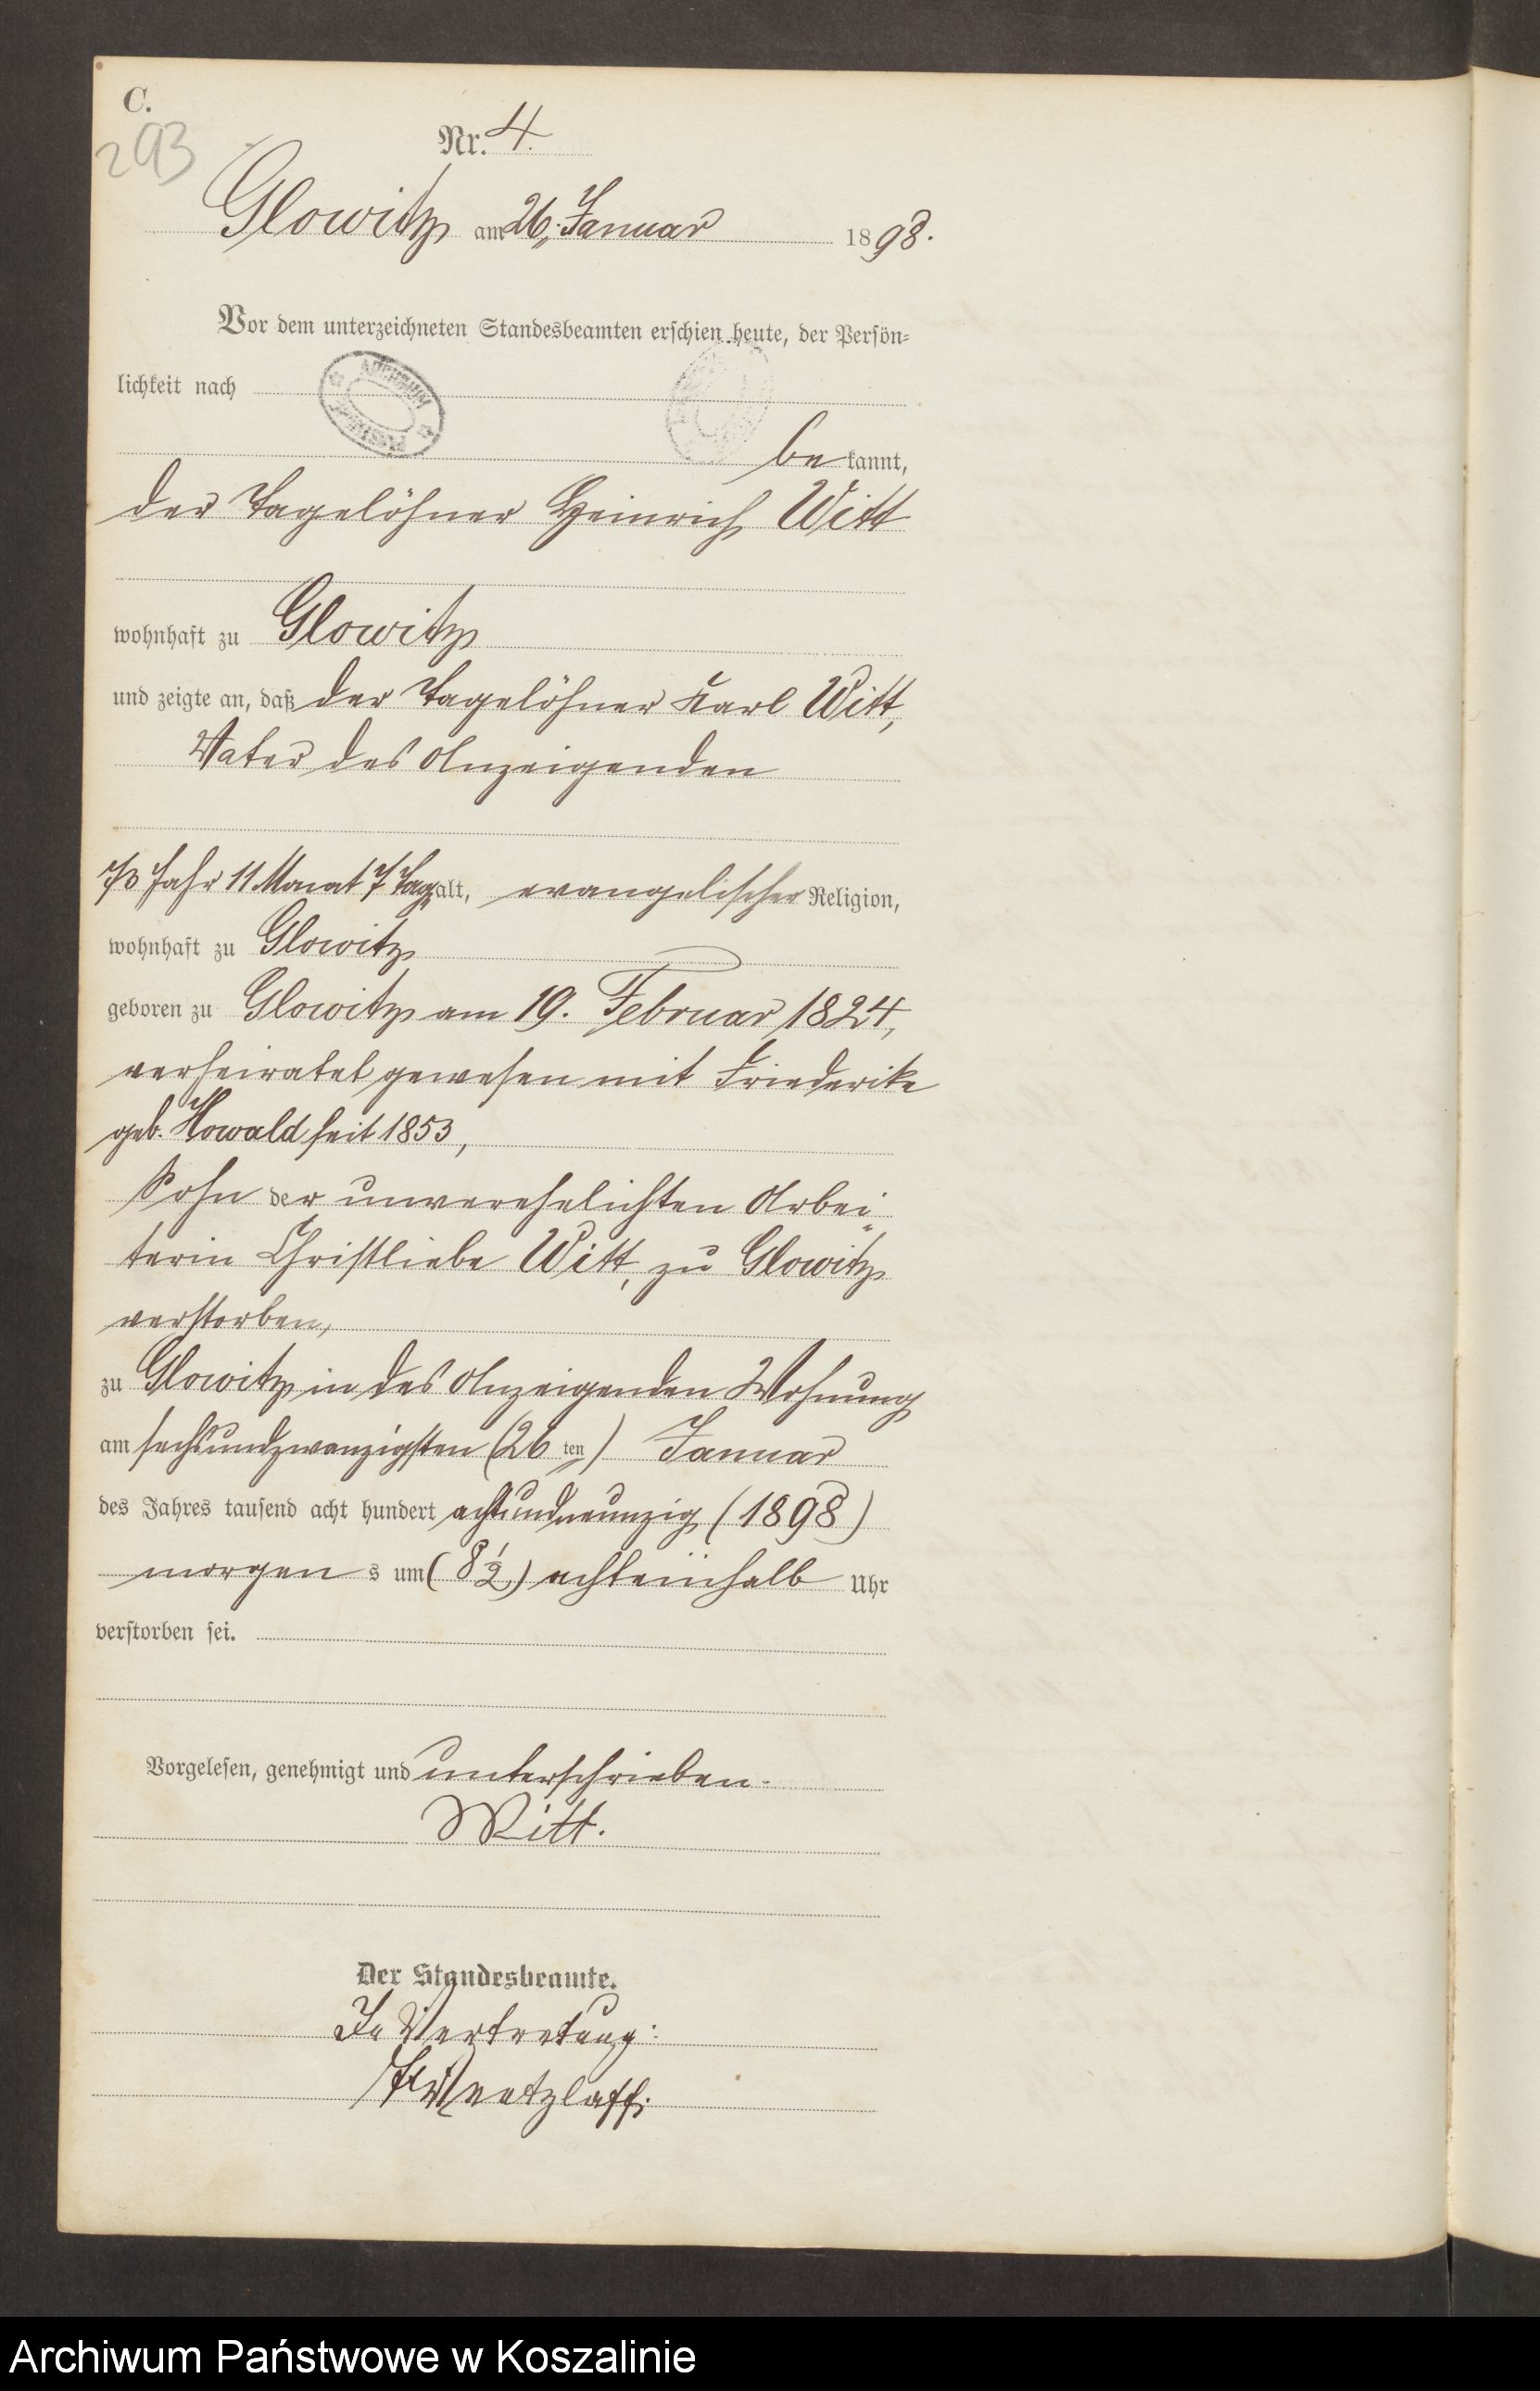 C.
293
Nr. 4.
Glowitz am 26. Januar 1898.
Vor dem unterzeichneten Standesbeamten erschien heute, der Persön=
lichkeit nach
ARCHIWUM
be kannt,
der Tagelöhner Heinrich Witt
wohnhaft zu Glowitz
und zeigte an, daß der Tagelöhner Karl Witt,
Vater des Anzeigenden
73 Jahr 11 Monat 7 Tag alt, evangelischer Religion,
wohnhaft zu Glowitz
geboren zu Glowitz am 19. Februar 1824,
verheiratet gewesen mit Friederike
geb. Howald seit 1853,
Sohn der unverehelichten Arbei
terin Christliebe Witt, zu Glowitz
verstorben,
zu Glowitz in des Anzeigenden Wohnung
am sechsundzwanzigsten (26 ten) Januar
des Jahres tausend acht hundert achtundneunzig (1898)
morgen s um (8 1/2) achteinhalb Uhr
verstorben sei.
Vorgelesen, genehmigt und unterschrieben.
Witt.
Der Standesbeamte.
In Vertretung:
Archiwum Państwowe w Koszalinie